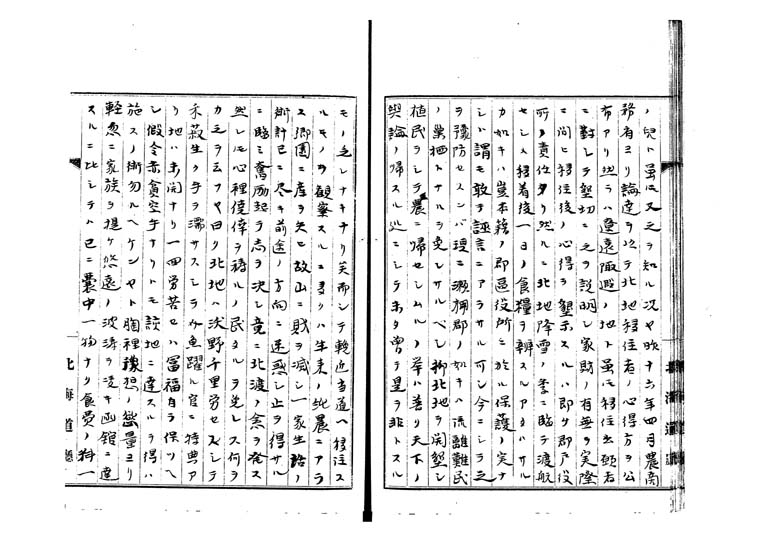 ノ兒ト雖𪜈又之ヲ知ル況ヤ昨十六年四月農商
務省ヨリ論達ヲ以テ北地移住者ノ心得方ヲ公
布アリ然ラハ遼遠陬避ノ地ト雖𪜈移住出願者
ニ對シテ墾切ニ之ヲ説明シ家財ノ有無ヲ実際
ニ問ヒ移住後ノ心得ヲ墾示スルハ即ケ郡戸役
所ノ責任タリ然ルニ北地降雪ノ季ニ臨テ渡航
セシメ移着後一日ノ食糧ヲ辨スルアタハサル
カ如キハ豈本籍ノ郡區役所ニ於ル保護ノ実ナ
シト謂モ敢テ誣言ニアラサル可シ今ニシテ之
ヲ豫防センハ瀬棚郡ノ如キハ流離難民
ノ巣栖トナルヲ免レサルベシ抑北地ヲ開墾シ
植民ヲシテ農ニ帰セシムルノ挙ハ善リ天下ノ
輿論ノ帰スル処ニシテホタ曽テ是ヲ非トスル
モノ之レナキナリ笑而シテ輓近當道ヘ移住ス
ルモノヲ観察スルニ多クハ生来ノ純農ニアラ
ス郷園ニ産ヲ失ヒ故山ニ財ヲ減シ一家生活ノ
術計已ニ尽キ前途ノ方向ニ迷惑シ止ヲ得サル
ニ臨ミ奮励起ノ志ヲ決シ竟ニ北渡ノ念ヲ発ス
然レ𪜈心裡僥倖ヲ禱ルノ民タルヲ免レス何ヲ
カ之ヲ云フヤ曰ク北地ハ沃野千里労セスシテ
禾穀生ク手ヲ濡サスシテ魚躍ル官ニ特典ア
リ地ハ未開ナリ一回労苦セハ冨福自ラ保ツヘ
シ假令赤貧空手ナリトモ該地ニ達スルヲ得ハ
施スノ術勿ルヘケンヤト胸裡機想ノ餘量ヨリ
輕忽ニ家族ヲ提ケ悠遠ノ波濤ヲ凌キ函館ニ達
スルニ比シテハ已ニ嚢中一物ナク食費ノ料一
北海道縣